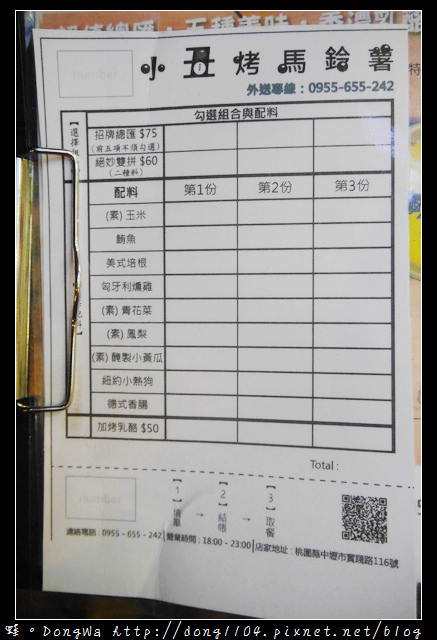 number
小丑烤馬鈴薯
外送專線：0955-655-242
勾選組合與配料
招牌總匯 $75
(前五項不須勾選)
絕妙雙拼 $60
(二種料)
配料 第1份 第2份 第3份
(素) 玉米
鮪魚
美式培根
匈牙利燻雞
(素) 青花菜
(素) 鳳梨
(素) 醃製小黃瓜
紐約小熱狗
德式香腸
加烤乳酪 $50
Total :
number
【1】填單 → 【2】結帳 → 【3】取餐
連絡電話：0955 - 655 - 242 營業時間：18:00 - 23:00 店家地址：桃園縣中壢市實踐路116號
DongWa http://dong1104.pixnet.net/blog